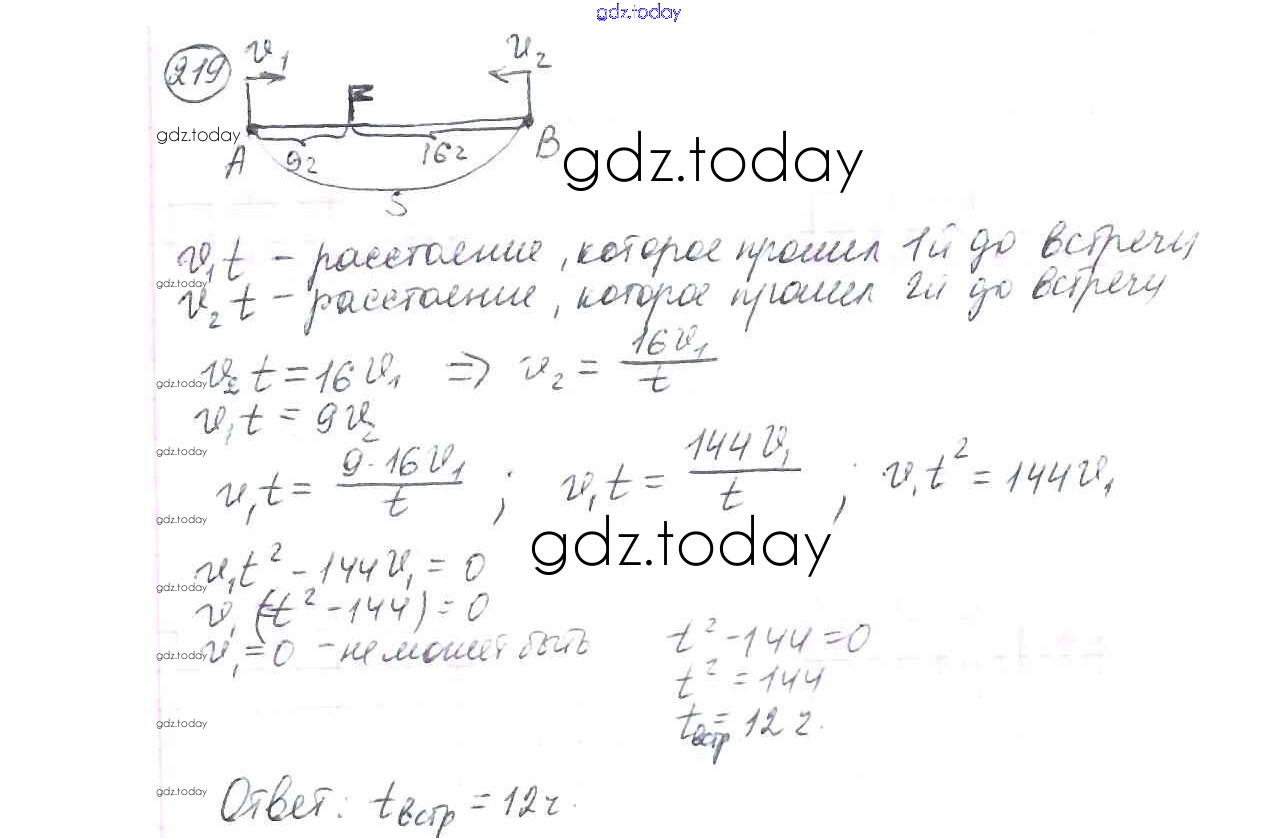 gdz.today
219
v₁ v₂
gdz.today
A 9г 16г B
S
gdz.today
v₁t – расстояние, которое прошел 1й до встречи
gdz.today
v₂t – расстояние, которое прошел 2й до встречи
gdz.today v₂t = 16v₁ ⇒ v₂ = 16v₁/t
v₁t = 9v₂
gdz.today
v₁t = 9·16v₁/t ; v₁t = 144v₁/t ; v₁t² = 144v₁
gdz.today
gdz.today
v₁t² – 144v₁ = 0
gdz.today
v₁(t² – 144) = 0
gdz.today v₁ = 0 – не может быть t² – 144 = 0
t² = 144
gdz.today tвстр = 12 г.
gdz.today
Ответ: tвстр = 12ч.